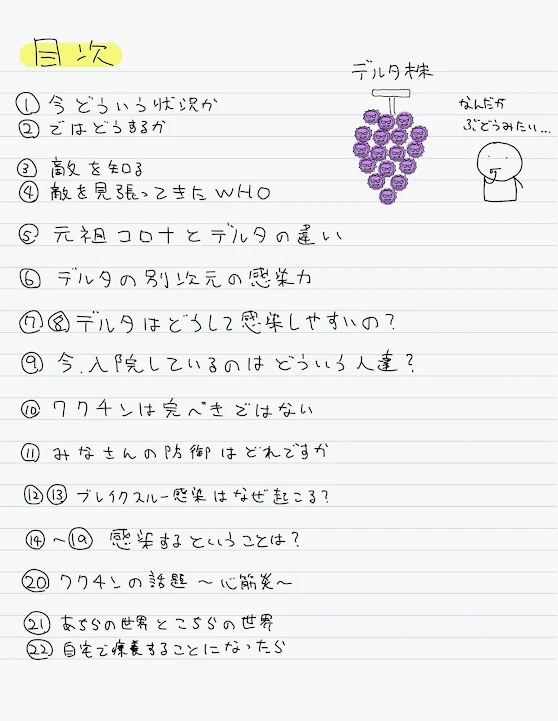 目次
デルタ株
なんだか
ぶどうみたい...
① 今どういう状況か
② ではどうするか
③ 敵を知る
④ 敵を見張ってきたWHO
⑤ 元祖コロナとデルタの違い
⑥ デルタの別次元の感染力
⑦⑧デルタはどうして感染しやすいの?
⑨ 今、入院しているのはどういう人達?
⑩ ワクチンは完ぺきではない
⑪ みなさんの防御はどれですか
⑫⑬ ブレイクスルー感染はなぜ起こる?
⑭〜⑲ 感染するということは?
⑳ ワクチンの話題 〜心筋炎〜
㉑ あちらの世界とこちらの世界
㉒ 自宅で療養することになったら